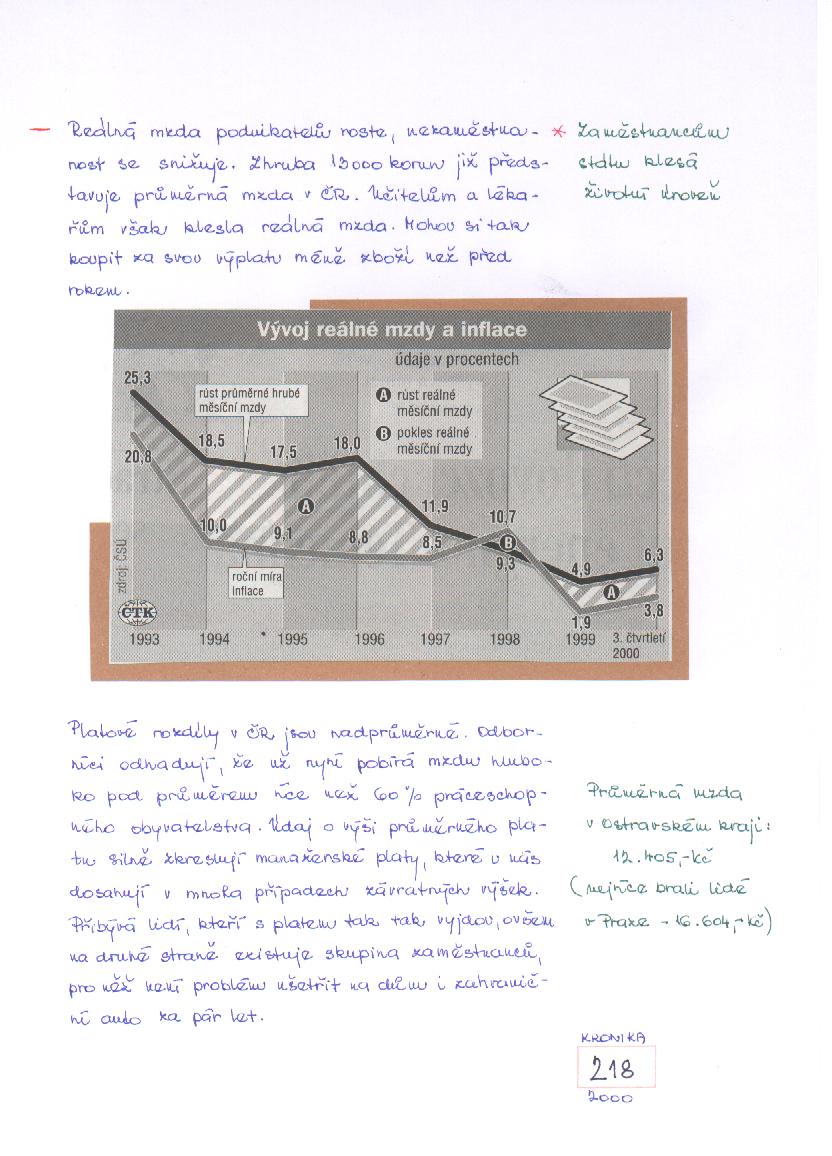 – Reálná mzda podnikatelů roste, nezaměstna-
nost se snižuje. Zhruba 13000 korun již předs-
tavuje průměrná mzda v ČR. Učitelům a léka-
řům však klesla reálná mzda. Mohou si tak
koupit za svou výplatu méně zboží než před
rokem.
* Zaměstnancům
státu klesá
životní úroveň
Vývoj reálné mzdy a inflace
údaje v procentech
25,3
růst průměrné hrubé
měsíční mzdy
A růst reálné
měsíční mzdy
B pokles reálné
měsíční mzdy
18,5
17,5
18,0
20,8
11,9
10,7
10,0
9,1
A
8,8
8,5
B
9,3
4,9
6,3
roční míra
inflace
A
1,9
3,8
zdroj: ČSÚ
ČTK
1993 1994 1995 1996 1997 1998 1999 3. čtvrtletí
2000
Platové rozdíly v ČR jsou nadprůměrné. Odbor-
níci odhadují, že už nyní pobírá mzdu hlubo-
ko pod průměrem více než 60% práceschop-
ného obyvatelstva. Údaj o výši průměrného pla-
tu silně zkreslují manažerské platy, které u nás
dosahují v mnoha případech závratných výšek.
Přibývá lidí, kteří s platem tak tak vyjdou, ovšem
na druhé straně existuje skupina zaměstnanců,
pro něž není problém ušetřit na dům i zahranič-
ní auto za pár let.
Průměrná mzda
v ostravském kraji:
12.405,-Kč
(nejvíce brali lidé
v Praze - 16.604,-Kč)
KRONIKA
218
2000